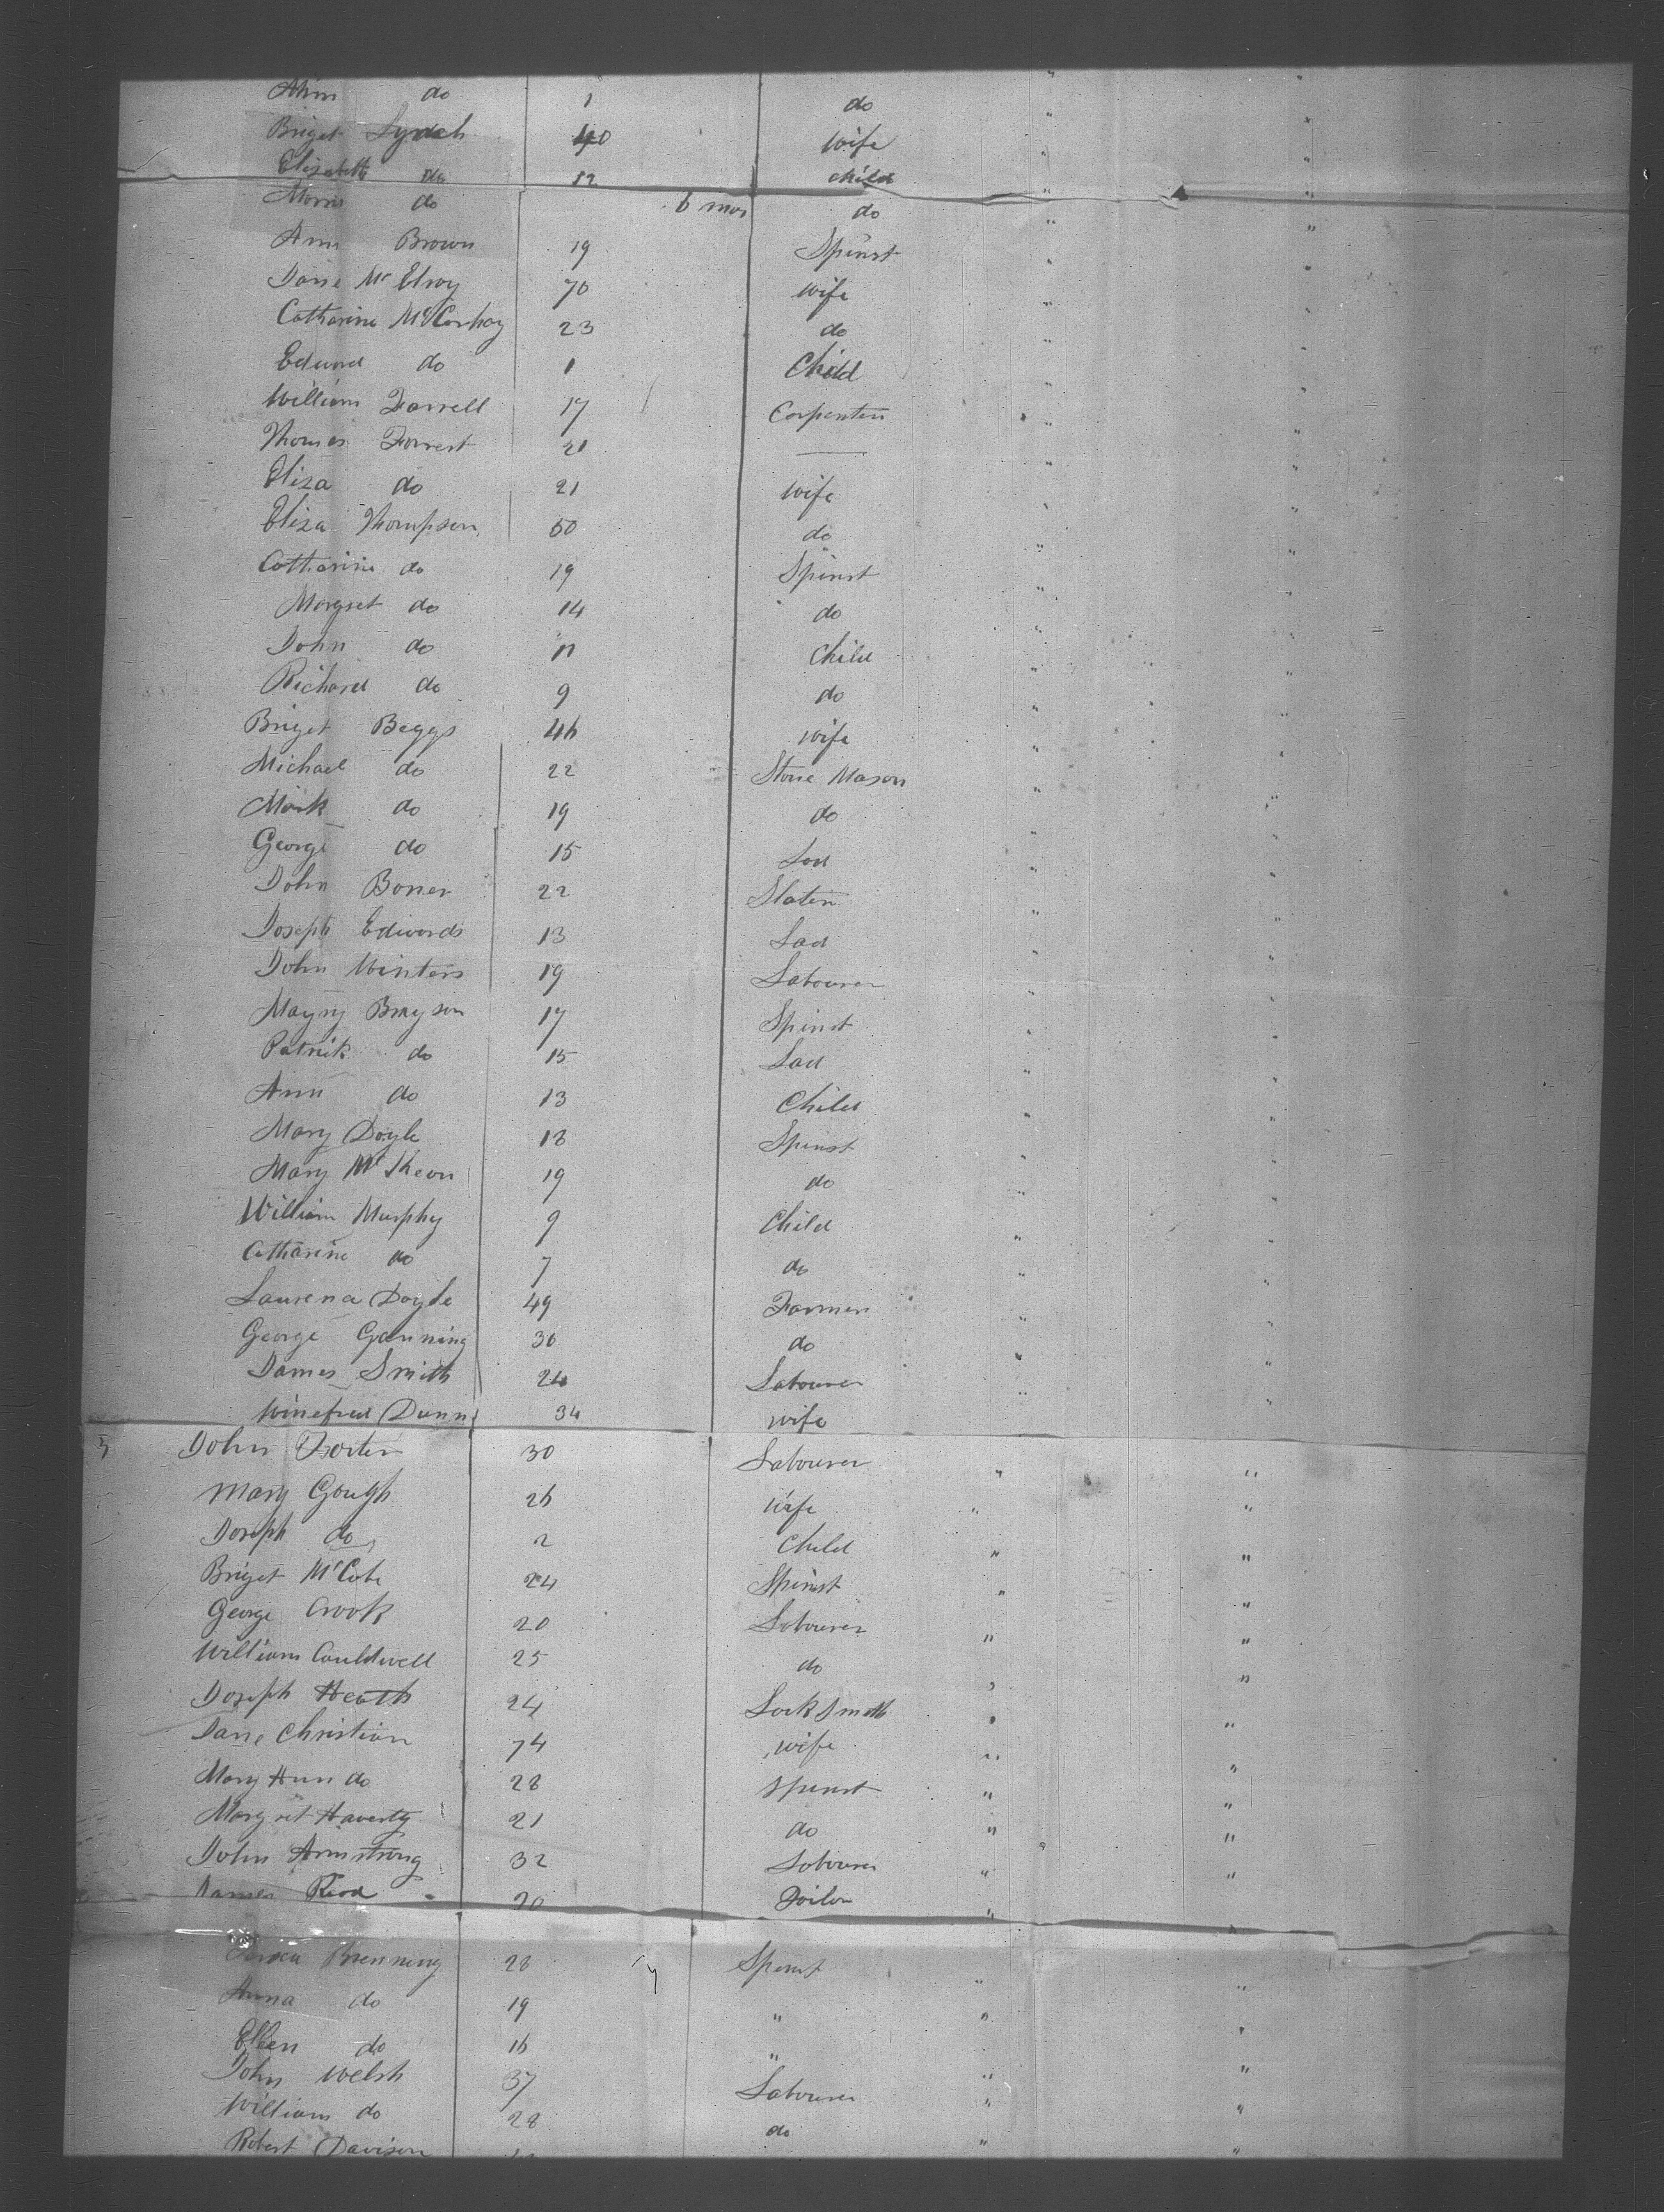 Ann do 1 do " "
Briget Lynch 40 wife " "
Elizabeth do 12 child " "
Morris do 6 mos do " "
Ann Brown 19 Spinst " "
Jane McElroy 70 wife " "
Catharine 23 do " "
Edward do 1 Child " "
William Farrell 17 Carpenter " "
Thomas Forrest 21 — " "
Eliza do 21 wife " "
Eliza Thompson 50 do " "
Catharine do 19 Spinst " "
Margret do 14 do " "
John do 11 Child " "
Richard do 9 do " "
Briget Beggs 46 wife " "
Michael do 22 Stone Mason " "
Mark do 19 do " "
George do 15 Lad " "
John Boner 22 Slater " "
Joseph Edwards 13 Lad " "
John Winters 19 Labourer " "
Bryson 17 Spinst " "
Patrick do 15 Lad " "
Ann do 13 Child " "
Mary Doyle 18 Spinst " "
Mary McKeon 19 do " "
William Murphy 9 Child " "
Catharine do 7 do " "
Doyle 49 Farmer " "
George Ganning 36 do " "
James Smith 24 Labourer " "
Winefred Dunn 34 wife
John Porter 30 Labourer " "
Mary Gough 26 wife " "
Joseph do 2 Child " "
Briget McCabe 24 Spinst " "
George Crook 20 Labourer " "
William Cauldwell 25 do " "
Joseph Heath 24 Lock Smith " "
Jane Christian 74 wife " "
Mary Ann do 28 Spinst " "
Margret Haverty 21 do " "
John Armstrong 32 Labourer " "
James 20 Tailor " "
Brenning 28 Spinst " "
Anna do 19 " " "
Ellen do 16 " " "
John Welsh 37 Labourer " "
William do 28 do " "
Robert Davison